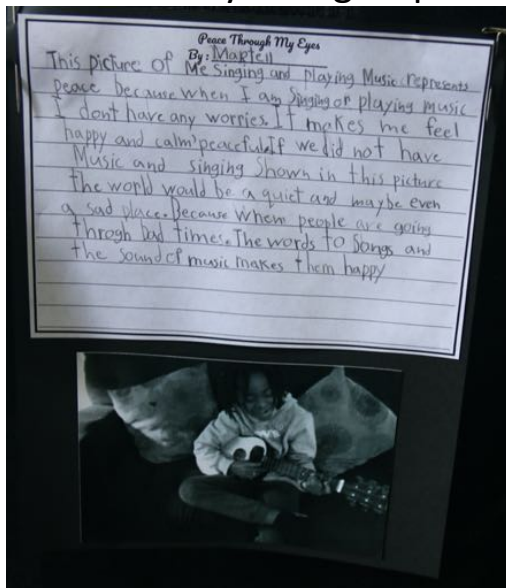 Peace Through My Eyes
By: Maptell
This picture of Me Singing and playing Music represents
peace because when I am Singing or playing music
I dont have any worries. It makes me feel
happy and calm peaceful. If we did not have
Music and singing Shown in this picture
the world would be a quiet and maybe even
a sad place. Because when people are going
throgh bad times. The words to Songs and
the sound of music makes them happy